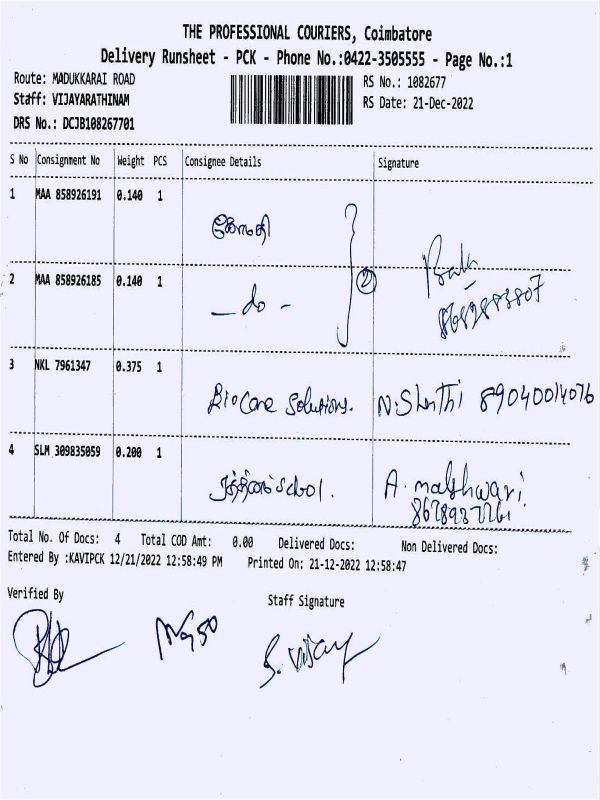 THE PROFESSIONAL COURIERS, Coimbatore
Delivery Runsheet - PCK - Phone No.:0422-3505555 - Page No.:1
Route: MADUKKARAI ROAD
RS No.: 1082677
Staff: VIJAYARATHINAM
RS Date: 21-Dec-2022
DRS No.: DCJB108267701
S No Consignment No Weight PCS Consignee Details Signature
1 MAA 858926191 0.140 1
கோமதி
2 MAA 858926185 0.140 1
2
Bala
- do -
3 NKL 7961347 0.375 1
BioCare Solutions. N. Shanthi
4 SLM 309835059 0.200 1
A.
Total No. Of Docs: 4 Total COD Amt: 0.00 Delivered Docs: Non Delivered Docs:
Entered By :KAVIPCK 12/21/2022 12:58:49 PM Printed On: 21-12-2022 12:58:47
Verified By
Staff Signature
S. Vijay